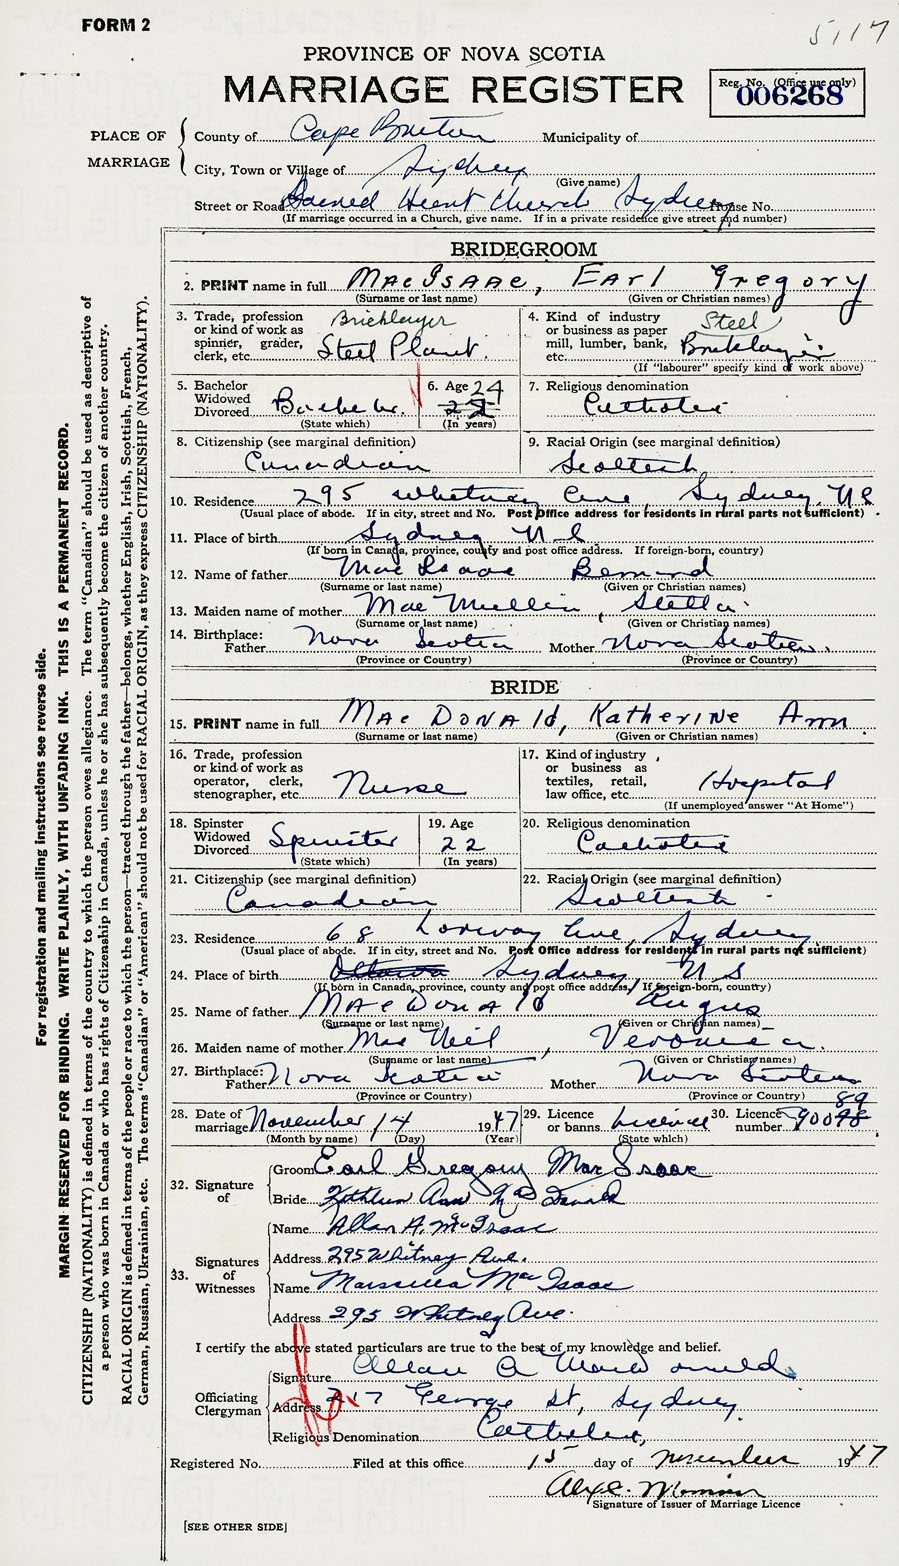 FORM 2
5117
PROVINCE OF NOVA SCOTIA
MARRIAGE REGISTER
Reg. No. (Office use only)
006268
PLACE OF MARRIAGE
County of Cape Breton Municipality of
City, Town or Village of Sydney
(Give name)
Street or Road Sacred Heart Church Sydney House No.
(If marriage occurred in a Church, give name. If in a private residence give street and number)
BRIDEGROOM
2. PRINT name in full MacIsaac, Earl Gregory
(Surname or last name) (Given or Christian names)
3. Trade, profession or kind of work as spinner, grader, clerk, etc. Bricklayer Steel Plant.
4. Kind of industry or business as paper mill, lumber, bank, etc. Steel Bricklayer
(If "labourer" specify kind of work above)
5. Bachelor Widowed Divorced
(State which)
6. Age 24
(In years)
7. Religious denomination Catholic
8. Citizenship (see marginal definition) Canadian
9. Racial Origin (see marginal definition) Scottish
10. Residence 295 Whitney Ave, Sydney, N S
(Usual place of abode. If in city, street and No. Post Office address for residents in rural parts not sufficient)
11. Place of birth Sydney N S
(If born in Canada, province, county and post office address. If foreign-born, country)
12. Name of father MacIsaac Bernard
(Surname or last name) (Given or Christian names)
13. Maiden name of mother MacMullin, Stella
(Surname or last name) (Given or Christian names)
14. Birthplace: Father Nova Scotia Mother Nova Scotia
(Province or Country) (Province or Country)
BRIDE
15. PRINT name in full MacDonald, Katherine Ann
(Surname or last name) (Given or Christian names)
16. Trade, profession or kind of work as operator, clerk, stenographer, etc. Nurse
17. Kind of industry or business as textiles, retail, law office, etc. Hospital
(If unemployed answer "At Home")
18. Spinster Widowed Divorced Spinster
(State which)
19. Age 22
(In years)
20. Religious denomination Catholic
21. Citizenship (see marginal definition) Canadian
22. Racial Origin (see marginal definition) Scottish
23. Residence 68 Lorway Ave, Sydney
(Usual place of abode. If in city, street and No. Post Office address for residents in rural parts not sufficient)
24. Place of birth Ottawa Sydney N S
(If born in Canada, province, county and post office address. If foreign-born, country)
25. Name of father MacDonald Angus
(Surname or last name) (Given or Christian names)
26. Maiden name of mother MacNeil, Veronica.
(Surname or last name) (Given or Christian names)
27. Birthplace: Father Nova Scotia Mother Nova Scotia
(Province or Country) (Province or Country)
28. Date of marriage November 14 1947
(Month by name) (Day) (Year)
29. Licence or banns Licence
(State which)
30. Licence number 90098 89
32. Signature of
Groom Earl Gregory MacIsaac
Bride Kathleen Ann MacDonald
33. Signatures of Witnesses
Name Allan A. McIsaac
Address 295 Whitney Ave.
Name MacIsaac
Address 295 Whitney Ave.
I certify the above stated particulars are true to the best of my knowledge and belief.
Officiating Clergyman
Signature Allan A MacDonald
Address 217 George St, Sydney
Religious Denomination Catholic,
Registered No. Filed at this office 15 day of November 1947
Signature of Issuer of Marriage Licence
[SEE OTHER SIDE]
For registration and mailing instructions see reverse side.
MARGIN RESERVED FOR BINDING. WRITE PLAINLY, WITH UNFADING INK. THIS IS A PERMANENT RECORD.
CITIZENSHIP (NATIONALITY) is defined in terms of the country to which the person owes allegiance. The term "Canadian" should be used as descriptive of
a person who was born in Canada or who has rights of Citizenship in Canada, unless he or she has subsequently become the citizen of another country.
RACIAL ORIGIN is defined in terms of the people or race to which the person—traced through the father—belongs, whether English, Irish, Scottish, French,
German, Russian, Ukrainian, etc. The terms "Canadian" or "American" should not be used for RACIAL ORIGIN, as they express CITIZENSHIP (NATIONALITY).